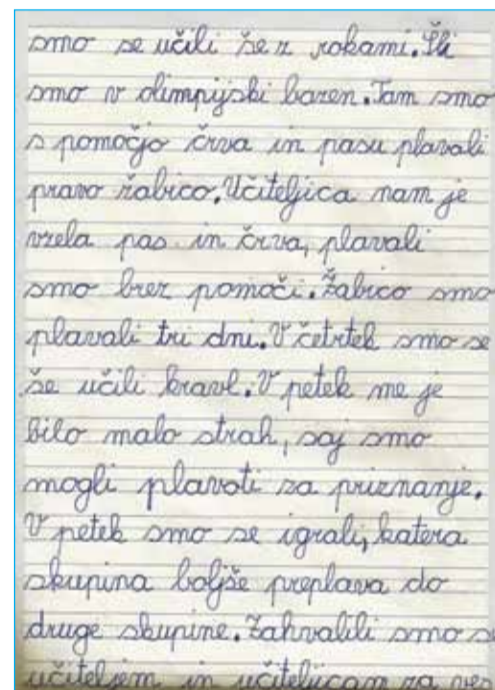 smo se učili še z rokami. Šli
smo v olimpijski bazen. Tam smo
s pomočjo črva in pasu plavali
pravo žabico. Učiteljica nam je
vzela pas in črva, plavali
smo brez pomoči. Žabico smo
plavali tri dni. V četrtek smo se
še učili kravl. V petek me je
bilo malo strah, saj smo
mogli plavati za priznanje.
V petek smo se igrali, katera
skupina boljše preplava do
druge skupine. Zahvalili smo se
učiteljem in učiteljicam za ves